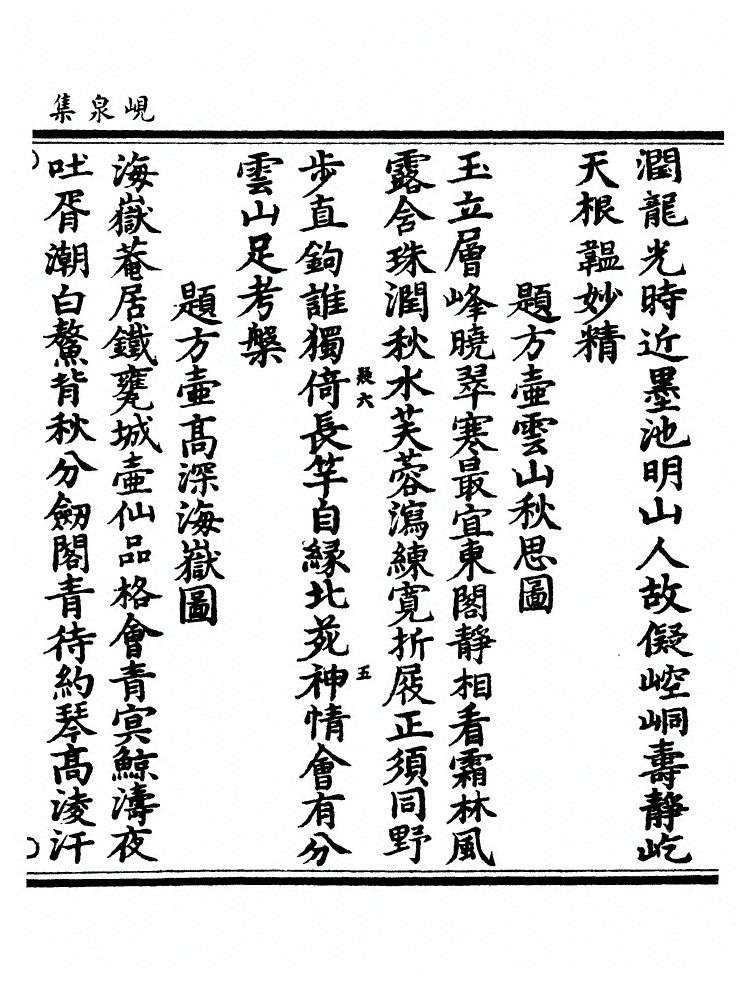 峴泉集
潤龍光時近墨池明山人故儗崆峒壽靜屹
天根韞妙精
題方壺雲山秋思圖
玉立層峰曉翠寒最宜東閣靜相看霜林風
露含珠潤秋水芙蓉瀉練寛折屐正須同野
步直鉤誰獨倚長竿自縁北苑神情會有分
疑六
五
雲山足考槃
題方壺髙深海嶽圖
海嶽菴居鐵甕城壺仙品格會青冥鯨濤夜
吐胥潮白鰲背秋分劔閣青待約琴髙淩汗